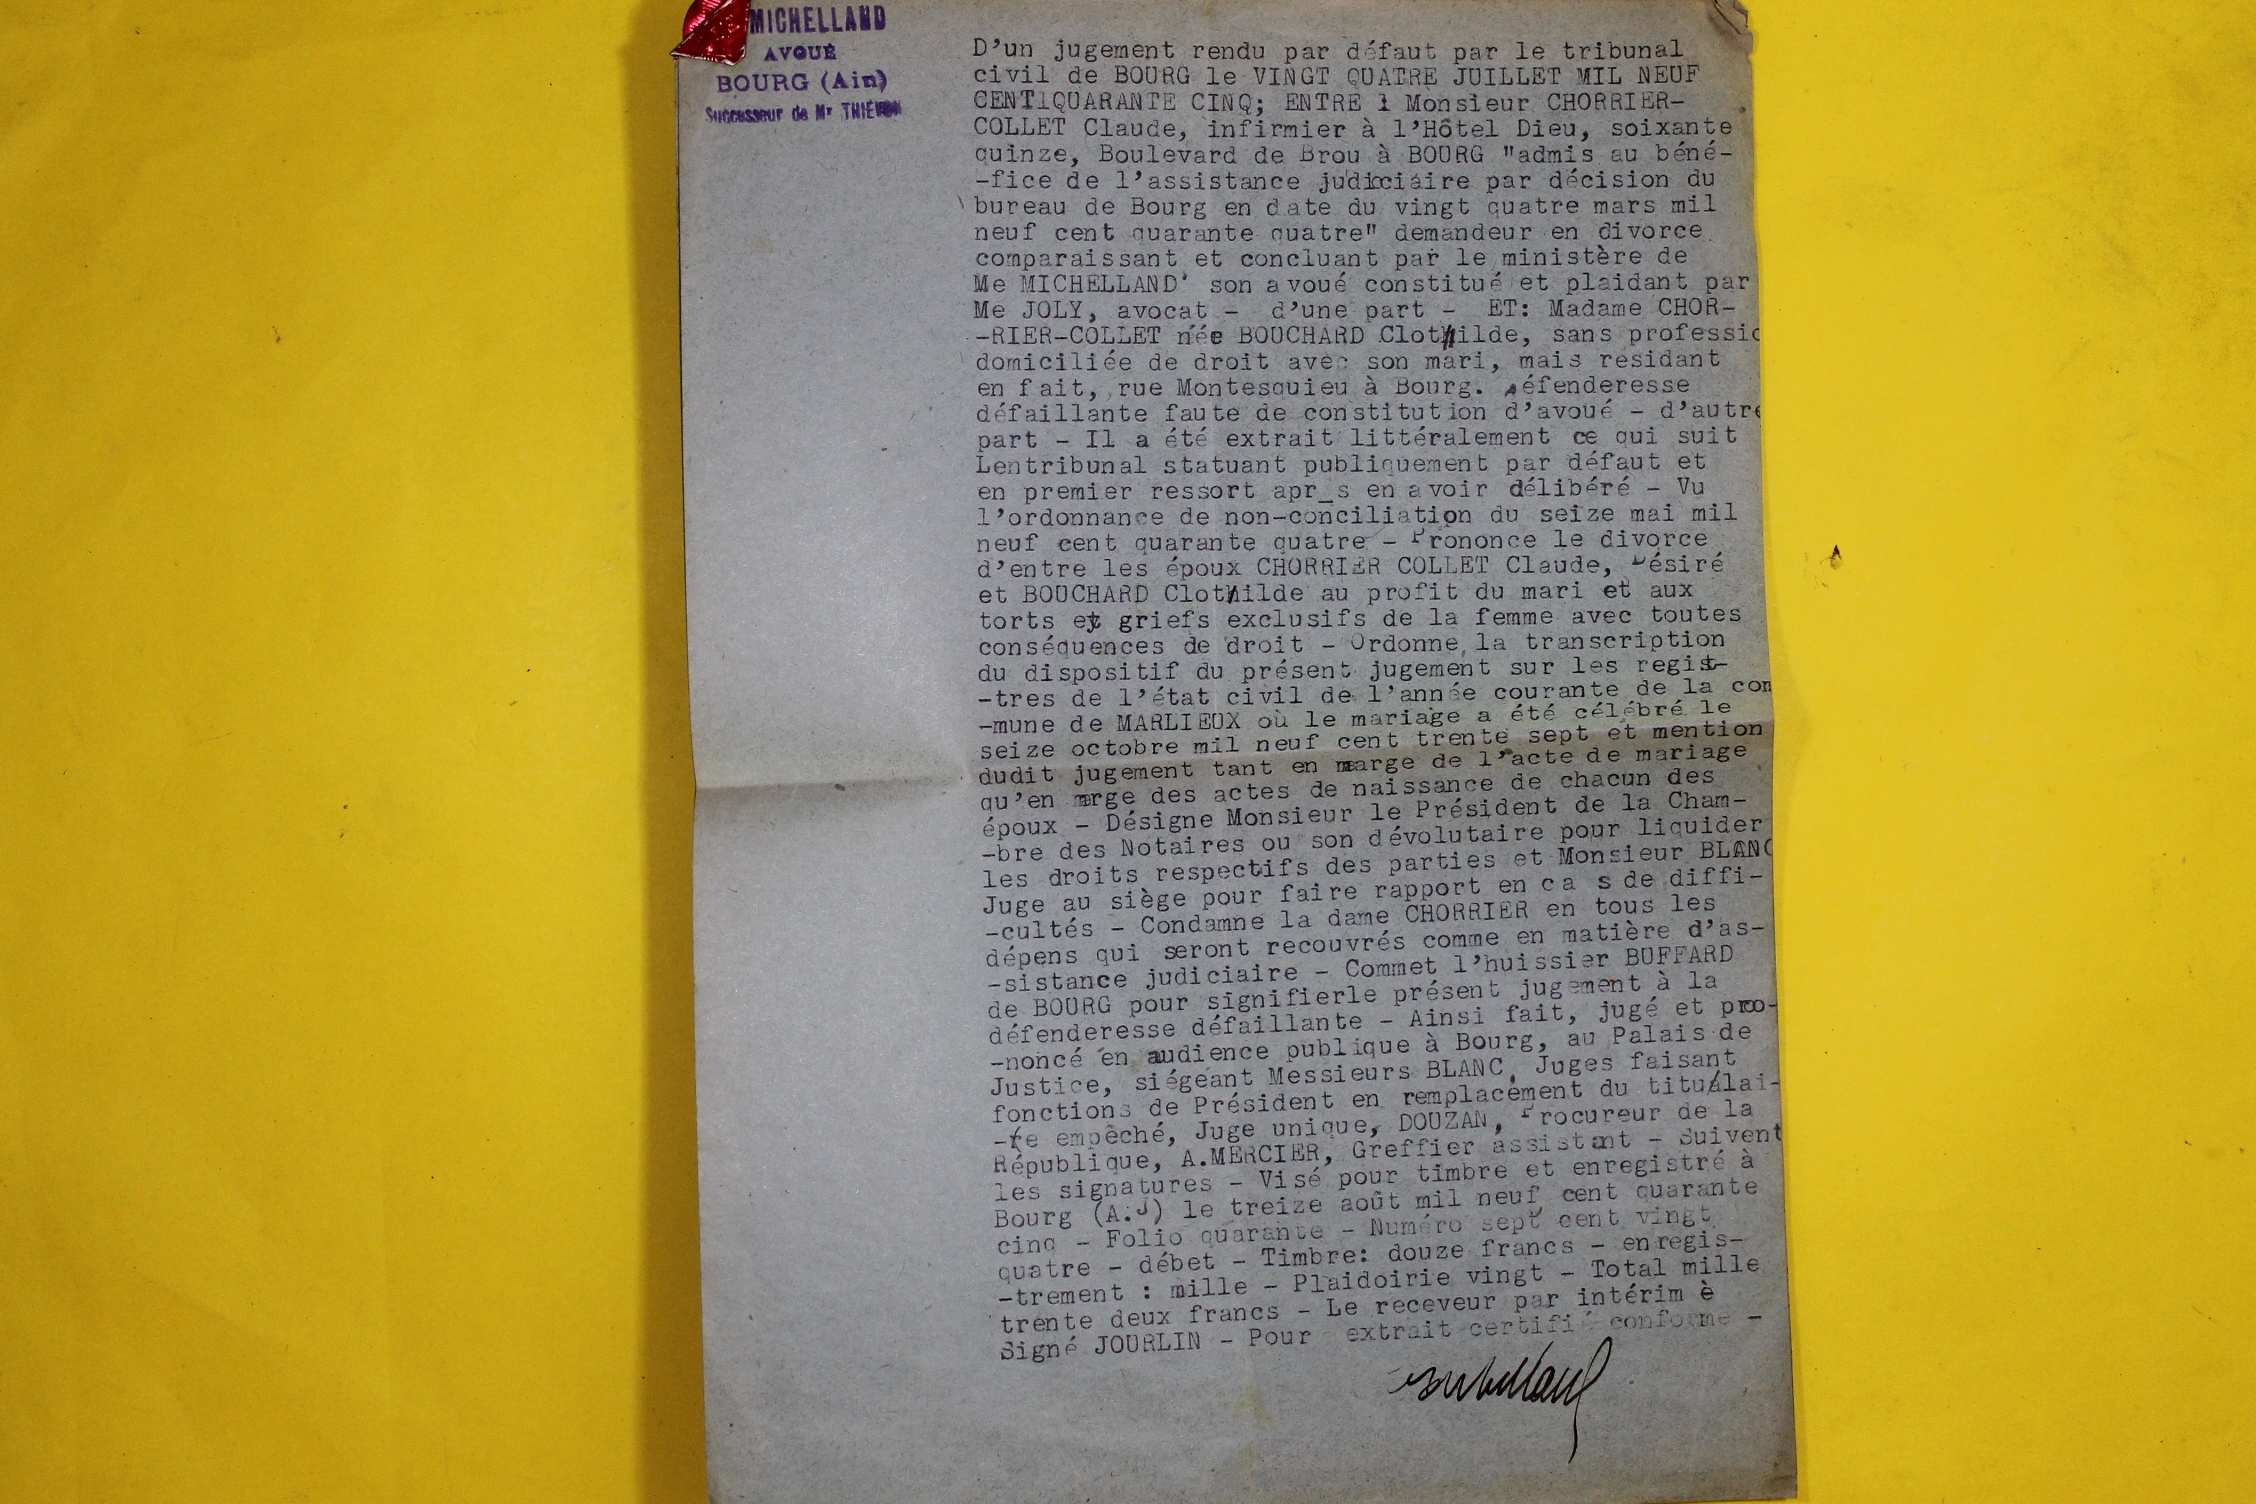 MICHELLAND
AVOUÉ
BOURG (Ain)
Successeur de Mr
D'un jugement rendu par défaut par le tribunal
civil de BOURG le VINGT QUATRE JUILLET MIL NEUF
CENT1QUARANTE CINQ; ENTRE 1 Monsieur CHORRIER-
COLLET Claude, infirmier à l'Hôtel Dieu, soixante
quinze, Boulevard de Brou à BOURG "admis au béné-
-fice de l'assistance judicciaire par décision du
bureau de Bourg en date du vingt quatre mars mil
neuf cent quarante quatre" demandeur en divorce
comparaissant et concluant par le ministère de
Me MICHELLAND' son avoué constitué et plaidant par
Me JOLY, avocat - d'une part - ET: Madame CHOR-
-RIER-COLLET née BOUCHARD Clothilde, sans professio
domiciliée de droit avec son mari, mais résidant
en fait, rue Montesquieu à Bourg. défenderesse
défaillante faute de constitution d'avoué - d'autre
part - Il a été extrait littéralement ce qui suit
Lentribunal statuant publiquement par défaut et
en premier ressort apr_s en avoir délibéré - Vu
l'ordonnance de non-conciliation du seize mai mil
neuf cent quarante quatre - Prononce le divorce
d'entre les époux CHORRIER COLLET Claude, Désiré
et BOUCHARD Clothilde au profit du mari et aux
torts et griefs exclusifs de la femme avec toutes
conséquences de droit - Ordonne la transcription
du dispositif du présent jugement sur les regis-
-tres de l'état civil de l'année courante de la com
-mune de MARLIEUX où le mariage a été célébré le
seize octobre mil neuf cent trente sept et mention
dudit jugement tant en marge de l'acte de mariage
qu'en marge des actes de naissance de chacun des
époux - Désigne Monsieur le Président de la Cham-
-bre des Notaires ou son dévolutaire pour liquider
les droits respectifs des parties et Monsieur BLANC
Juge au siège pour faire rapport en ca s de diffi-
-cultés - Condamne la dame CHORRIER en tous les
dépens qui seront recouvrés comme en matière d'as-
-sistance judiciaire - Commet l'huissier BUFFARD
de BOURG pour signifierle présent jugement à la
défenderesse défaillante - Ainsi fait, jugé et pro-
-noncé en audience publique à Bourg, au Palais de
Justice, siégeant Messieurs BLANC, Juges faisant
fonctions de Président en remplacement du titulai-
-re empêché, Juge unique, DOUZAN, Procureur de la
République, A.MERCIER, Greffier assistant - Suivent
les signatures - Visé pour timbre et enregistré à
Bourg (A.J) le treize août mil neuf cent quarante
cinq - Folio quarante - Numéro sept cent vingt
quatre - débet - Timbre: douze francs - enregis-
-trement : mille - Plaidoirie vingt - Total mille
trente deux francs - Le receveur par intérim è
Signé JOURLIN - Pour extrait certifié conforme -